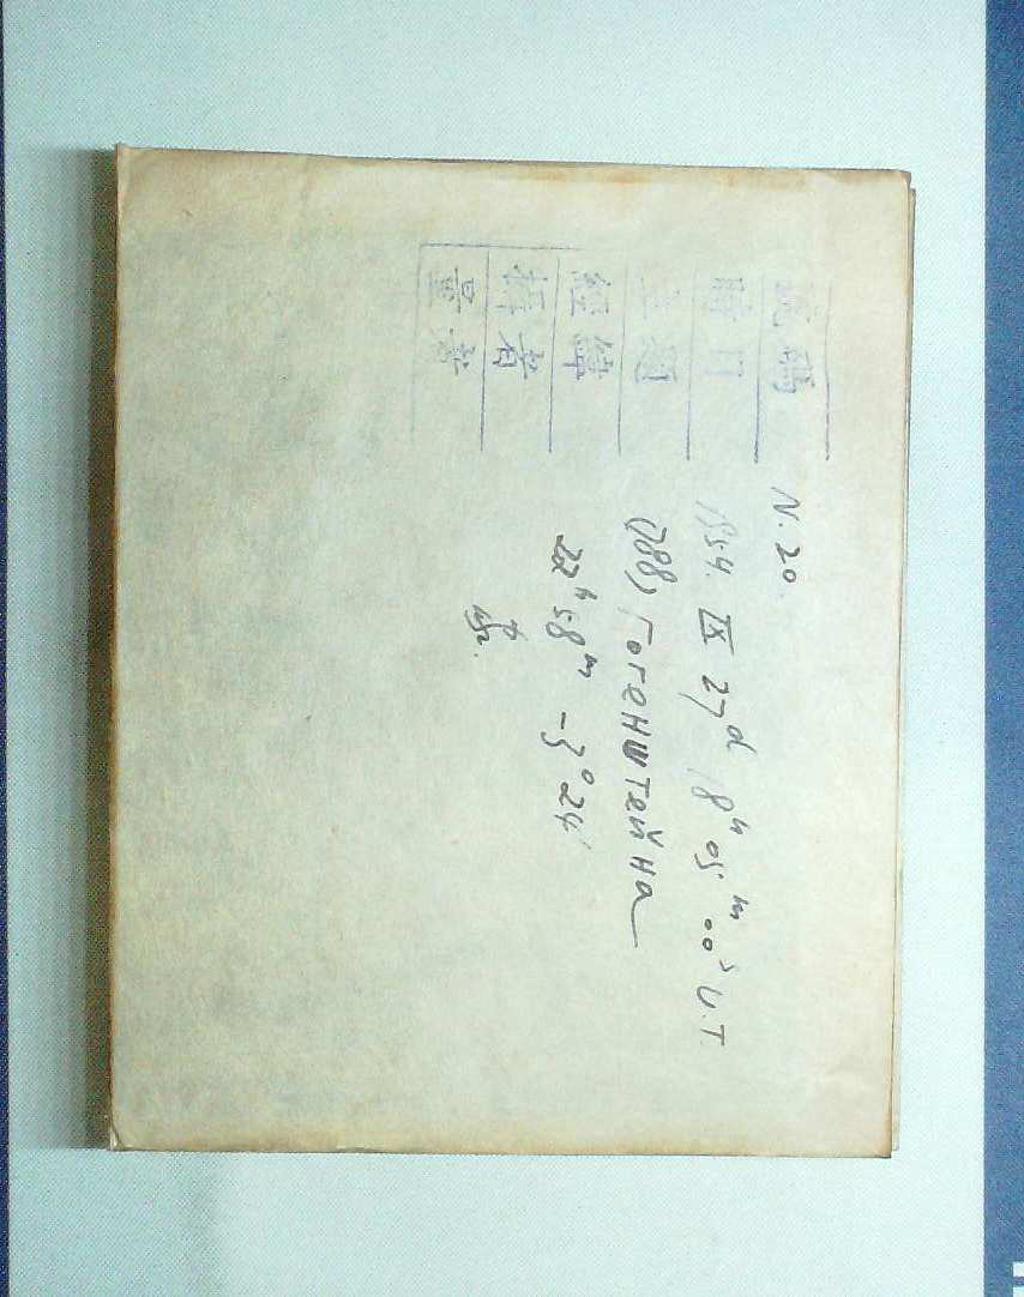 號碼 N. 20.
時日 1954. IX 27ᵈ 18ʰ 05ᵐ 00ˢ U.T
主題 (788) Гогенштейна
經緯 22ʰ 58ᵐ -3°24'
者
量者